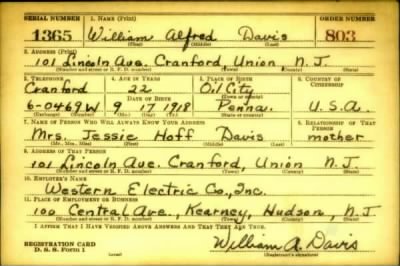 SERIAL NUMBER 1. NAME (Print) ORDER NUMBER
1365 William Alfred Davis 803
(First) (Middle) (Last)
2. ADDRESS (Print)
101 Lincoln Ave. Cranford, Union N.J.
(Number and street or R. F. D. number) (Town) (County) (State)
3. TELEPHONE 4. AGE IN YEARS 5. PLACE OF BIRTH 6. COUNTRY OF CITIZENSHIP
Cranford 22 Oil City
DATE OF BIRTH
6-0469W 9 17 1918 Penna. U.S.A.
(Exchange) (Number) (Mo.) (Day) (Yr.) (State or country)
7. NAME OF PERSON WHO WILL ALWAYS KNOW YOUR ADDRESS 8. RELATIONSHIP OF THAT PERSON
Mrs. Jessie Hoff Davis mother
(Mr., Mrs., Miss) (First) (Middle) (Last)
9. ADDRESS OF THAT PERSON
101 Lincoln Ave. Cranford, Union N.J.
(Number and street or R. F. D. number) (Town) (County) (State)
10. EMPLOYER'S NAME
Western Electric Co., Inc.
11. PLACE OF EMPLOYMENT OR BUSINESS
100 Central Ave., Kearney, Hudson, N.J
(Number and street or R. F. D. number) (Town) (County) (State)
I AFFIRM THAT I HAVE VERIFIED ABOVE ANSWERS AND THAT THEY ARE TRUE.
REGISTRATION CARD
D. S. S. Form 1
William A. Davis